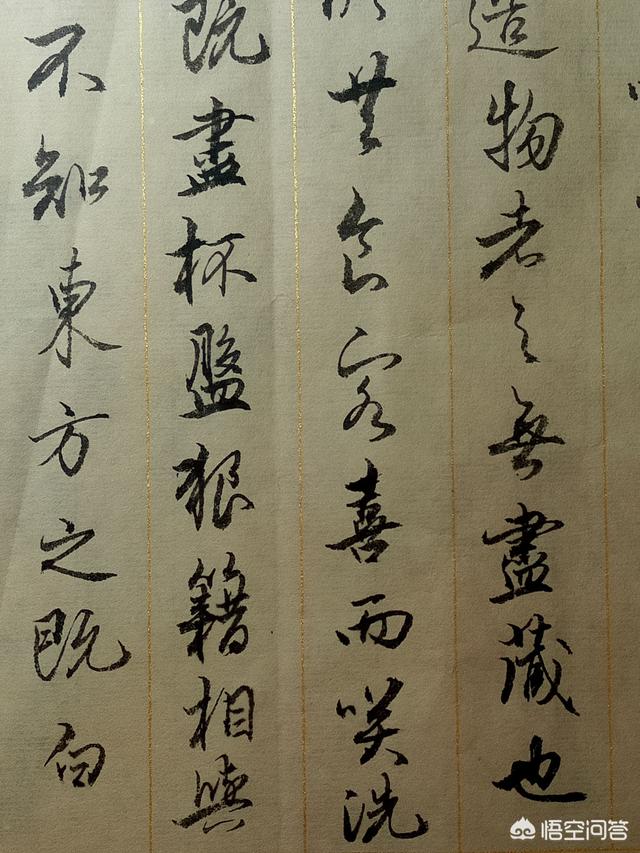 造物者之無盡藏也
共食客喜而咲洗
既盡杯盤狼籍相與
不知東方之既白
悟空问答